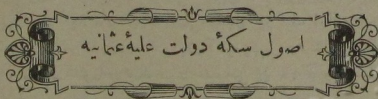 اصول سکهٔ دولت علیهٔ عثمانیه